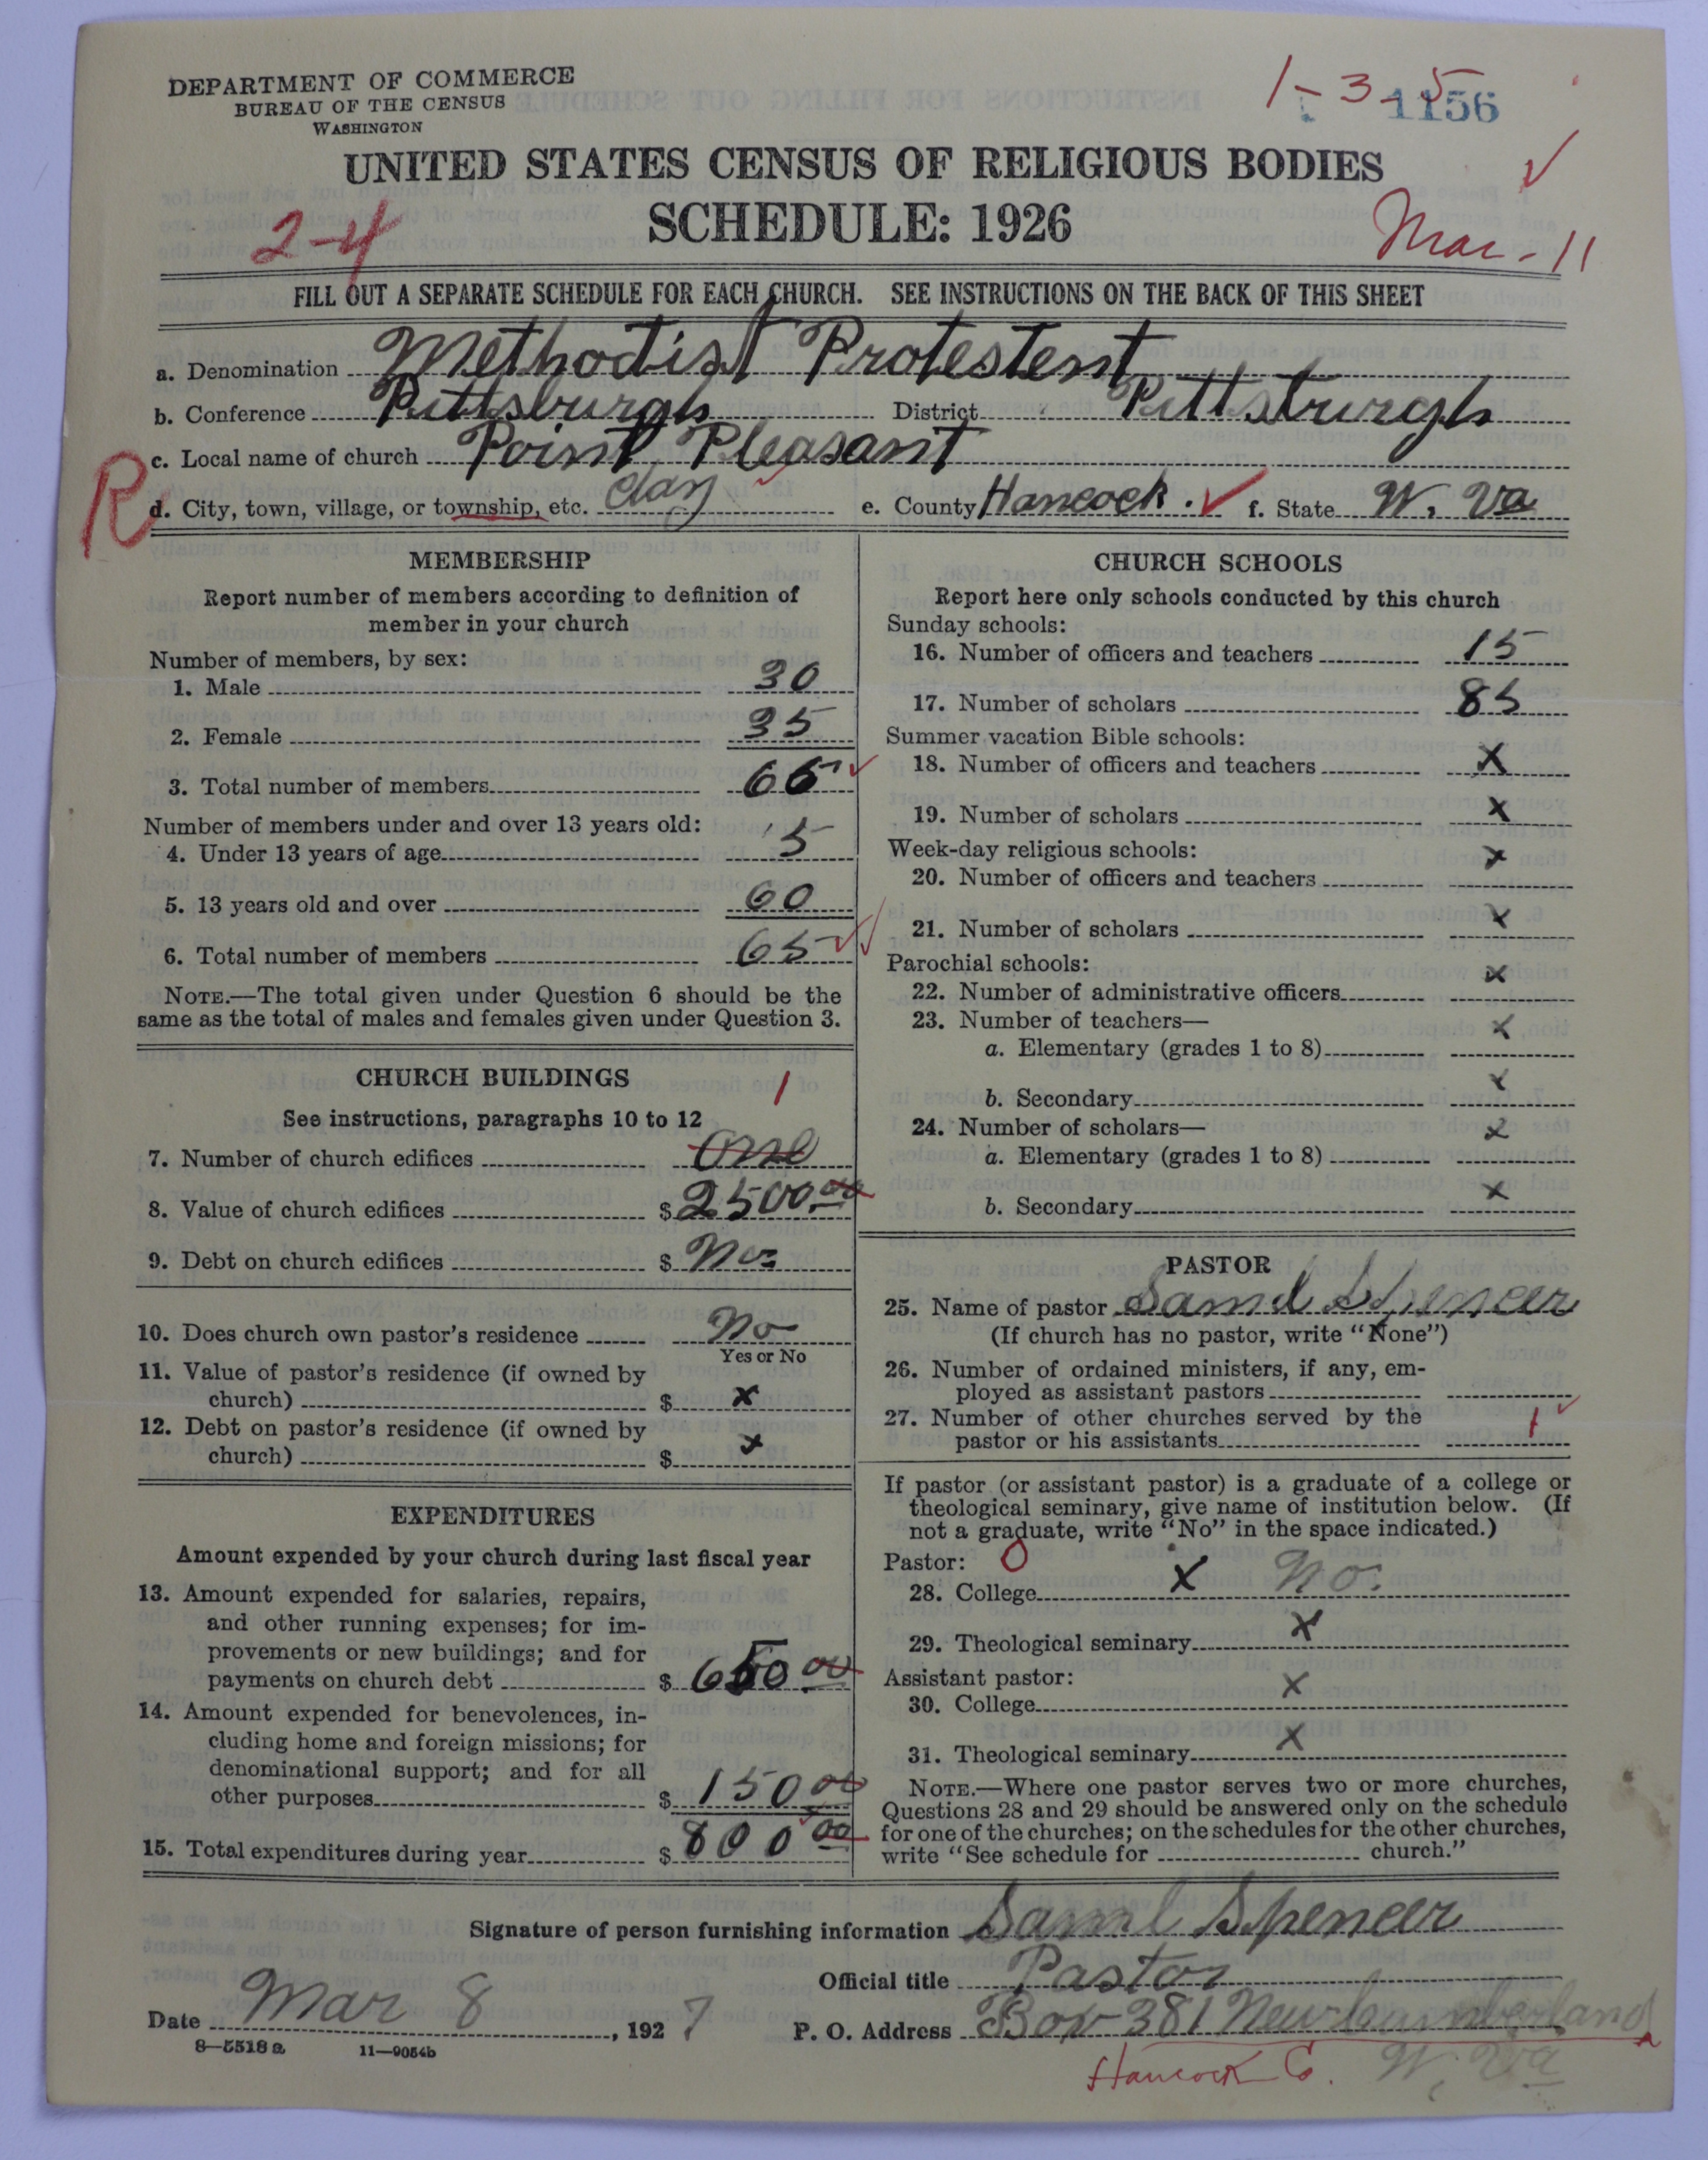 DEPARTMENT OF COMMERCE
BUREAU OF THE CENSUS
WASHINGTON
1-3-5
1156
UNITED STATES CENSUS OF RELIGIOUS BODIES
SCHEDULE: 1926
2-4
Mar-11
FILL OUT A SEPARATE SCHEDULE FOR EACH CHURCH. SEE INSTRUCTIONS ON THE BACK OF THIS SHEET
a. Denomination Methodist Protestent
b. Conference Pittsburgh District Pittsburgh
c. Local name of church Point Pleasant
R
d. City, town, village, or township, etc. Clay e. County Hancock. f. State W. Va
MEMBERSHIP
Report number of members according to definition of
member in your church
Number of members, by sex:
1. Male 30
2. Female 35
3. Total number of members 65
Number of members under and over 13 years old:
4. Under 13 years of age 5
5. 13 years old and over 60
6. Total number of members 65
NOTE.—The total given under Question 6 should be the
same as the total of males and females given under Question 3.
CHURCH BUILDINGS
See instructions, paragraphs 10 to 12
1
7. Number of church edifices One
8. Value of church edifices $ 2500.00
9. Debt on church edifices $ No
10. Does church own pastor's residence No
Yes or No
11. Value of pastor's residence (if owned by
church) $ x
12. Debt on pastor's residence (if owned by
church) $ x
EXPENDITURES
Amount expended by your church during last fiscal year
13. Amount expended for salaries, repairs,
and other running expenses; for im-
provements or new buildings; and for
payments on church debt $ 650 00
14. Amount expended for benevolences, in-
cluding home and foreign missions; for
denominational support; and for all
other purposes $ 150 00
15. Total expenditures during year $ 800 00
CHURCH SCHOOLS
Report here only schools conducted by this church
Sunday schools:
16. Number of officers and teachers 15
17. Number of scholars 85
Summer vacation Bible schools:
18. Number of officers and teachers x
19. Number of scholars x
Week-day religious schools:
20. Number of officers and teachers x
21. Number of scholars x
Parochial schools:
22. Number of administrative officers x
23. Number of teachers—
a. Elementary (grades 1 to 8) x
b. Secondary x
24. Number of scholars—
a. Elementary (grades 1 to 8) x
b. Secondary x
PASTOR
25. Name of pastor Saml Spencer
(If church has no pastor, write "None")
26. Number of ordained ministers, if any, em-
ployed as assistant pastors
27. Number of other churches served by the
pastor or his assistants 1
If pastor (or assistant pastor) is a graduate of a college or
theological seminary, give name of institution below. (If
not a graduate, write "No" in the space indicated.)
Pastor: 0
28. College x No.
29. Theological seminary x
Assistant pastor:
30. College x
31. Theological seminary x
NOTE.—Where one pastor serves two or more churches,
Questions 28 and 29 should be answered only on the schedule
for one of the churches; on the schedules for the other churches,
write "See schedule for church."
Signature of person furnishing information Saml Spencer
Official title Pastor
Date Mar 8, 1927 P. O. Address Box 381 New Cumberland
8—5518a 11—9054b
Hancock Co. W. Va